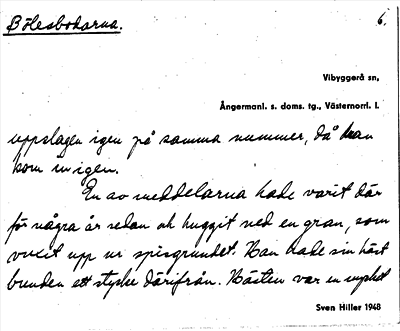 Bölesbodarna.
6.
Vibyggerå sn,
Ångermanl. s. doms. tg., Västernorrl. l.
uppslagen igen på samma nummer, då han
kom in igen.
En av meddelarna hade varit där
för några år sedan och huggit ned en gran, som
vuxit upp ur spisgrundet. Han hade sin häst
bunden ett stycke därifrån. Hästen var en mycket
Sven Hiller 1948